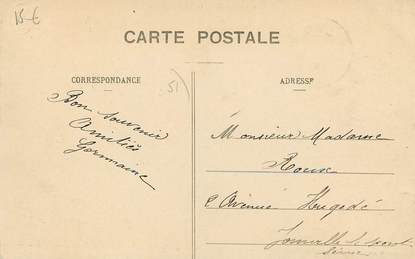 15-€
CARTE POSTALE
CORRESPONDANCE
ADRESSE
51
Bon souvenir
Amitiés
Germaine
Monsieur Madame
Roux
Avenue
Joinville le pont
Seine